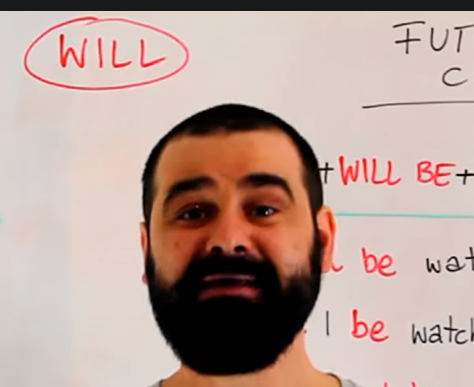 WILL
FUT
C
+WILL BE+
be wat
I be watch